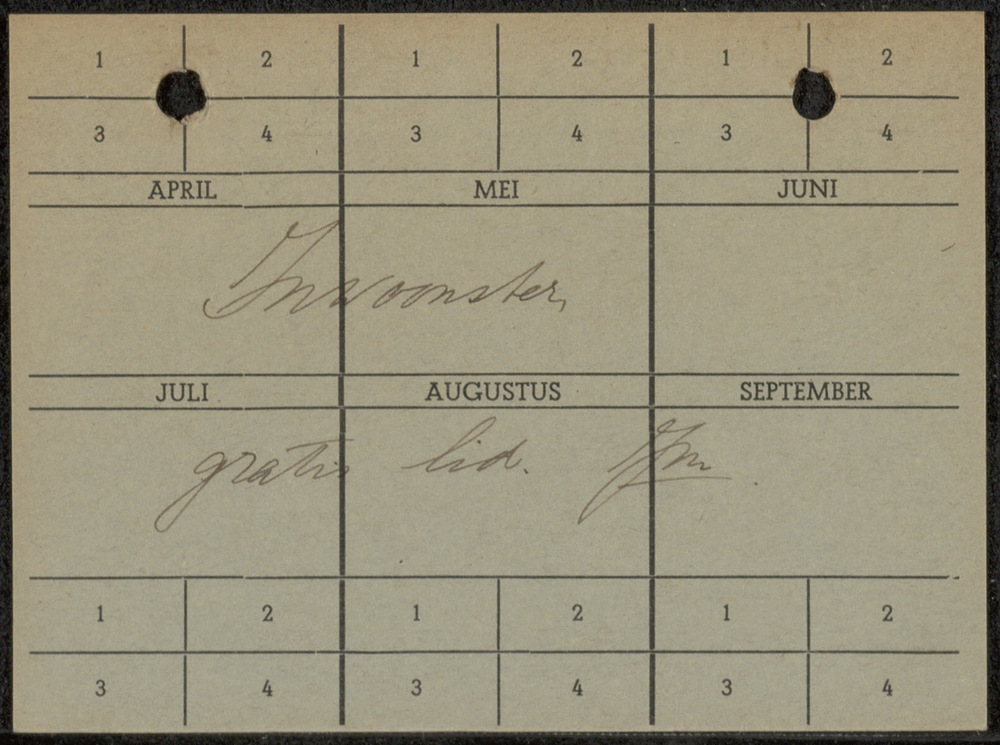 1 2 1 2 1 2
3 4 3 4 3 4
APRIL MEI JUNI
Inwoonster,
JULI AUGUSTUS SEPTEMBER
gratis lid.
1 2 1 2 1 2
3 4 3 4 3 4